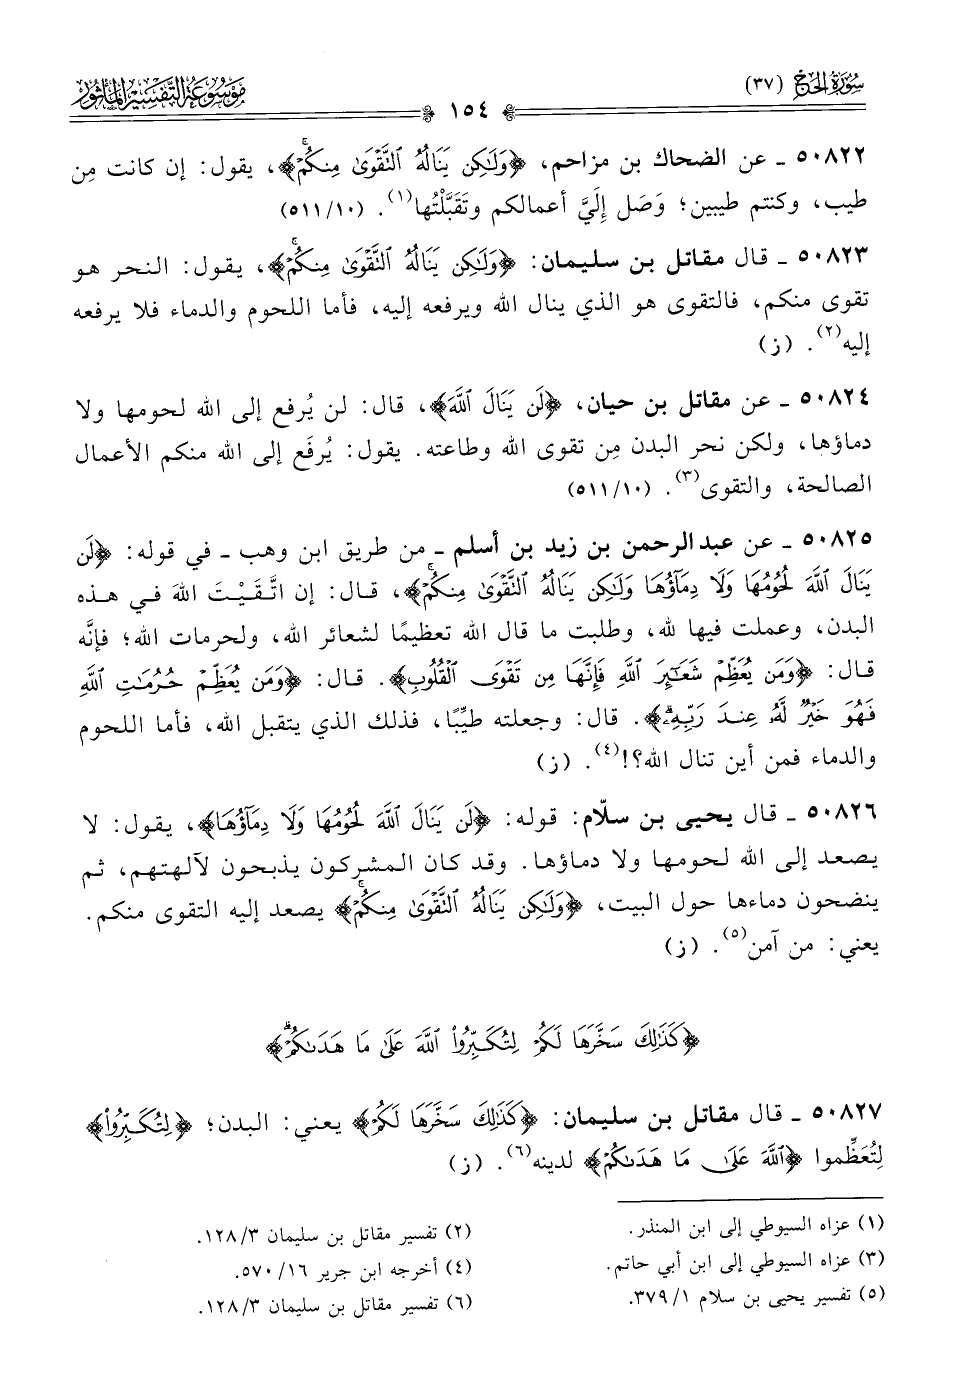 سُورَةُ الحَجّ (٣٧)
١٥٤
مَوْسُوعَةُ التَّفْسِيرِ المَأْثُورِ
٥٠٨٢٢ ـ عن الضحاك بن مزاحم، ﴿وَلَٰكِن يَنَالُهُ ٱلتَّقْوَىٰ مِنكُمْۚ﴾، يقول: إن كانت مِن
طيب، وكنتم طيبين؛ وَصَل إِلَيَّ أعمالكم وتَقَبَّلْتُها(١). (٥١١/١٠)
٥٠٨٢٣ ـ قال مقاتل بن سليمان: ﴿وَلَٰكِن يَنَالُهُ ٱلتَّقْوَىٰ مِنكُمْۚ﴾، يقول: النحر هو
تقوى منكم، فالتقوى هو الذي ينال الله ويرفعه إليه، فأما اللحوم والدماء فلا يرفعه
إليه(٢). (ز)
٥٠٨٢٤ ـ عن مقاتل بن حيان، ﴿لَن يَنَالَ ٱللَّهَ﴾، قال: لن يُرفع إلى الله لحومها ولا
دماؤها، ولكن نحر البدن مِن تقوى الله وطاعته. يقول: يُرفَع إلى الله منكم الأعمال
الصالحة، والتقوى(٣). (٥١١/١٠)
٥٠٨٢٥ ـ عن عبد الرحمن بن زيد بن أسلم ـ من طريق ابن وهب ـ في قوله: ﴿لَن
يَنَالَ ٱللَّهَ لُحُومُهَا وَلَا دِمَآؤُهَا وَلَٰكِن يَنَالُهُ ٱلتَّقْوَىٰ مِنكُمْۚ﴾، قال: إن اتَّقَيْتَ اللهَ في هذه
البدن، وعملت فيها لله، وطلبت ما قال الله تعظيمًا لشعائر الله، ولحرمات الله؛ فإنَّه
قال: ﴿وَمَن يُعَظِّمْ شَعَٰٓئِرَ ٱللَّهِ فَإِنَّهَا مِن تَقْوَى ٱلْقُلُوبِ﴾. قال: ﴿وَمَن يُعَظِّمْ حُرُمَٰتِ ٱللَّهِ
فَهُوَ خَيْرٌ لَّهُۥ عِندَ رَبِّهِۦۗ﴾. قال: وجعلته طيِّبًا، فذلك الذي يتقبل الله، فأما اللحوم
والدماء فمن أين تنال الله؟!(٤). (ز)
٥٠٨٢٦ ـ قال يحيى بن سلّام: قوله: ﴿لَن يَنَالَ ٱللَّهَ لُحُومُهَا وَلَا دِمَآؤُهَا﴾، يقول: لا
يصعد إلى الله لحومها ولا دماؤها. وقد كان المشركون يذبحون لآلهتهم، ثم
ينضحون دماءها حول البيت، ﴿وَلَٰكِن يَنَالُهُ ٱلتَّقْوَىٰ مِنكُمْۚ﴾ يصعد إليه التقوى منكم.
يعني: من آمن(٥). (ز)
﴿كَذَٰلِكَ سَخَّرَهَا لَكُمْ لِتُكَبِّرُوا۟ ٱللَّهَ عَلَىٰ مَا هَدَىٰكُمْۗ﴾
٥٠٨٢٧ ـ قال مقاتل بن سليمان: ﴿كَذَٰلِكَ سَخَّرَهَا لَكُمْ﴾ يعني: البدن؛ ﴿لِتُكَبِّرُوا۟﴾
لِتُعَظِّموا ﴿ٱللَّهَ عَلَىٰ مَا هَدَىٰكُمْ﴾ لدينه(٦). (ز)
(١) عزاه السيوطي إلى ابن المنذر.
(٢) تفسير مقاتل بن سليمان ١٢٨/٣.
(٣) عزاه السيوطي إلى ابن أبي حاتم.
(٤) أخرجه ابن جرير ٥٧٠/١٦.
(٥) تفسير يحيى بن سلام ٣٧٩/١.
(٦) تفسير مقاتل بن سليمان ١٢٨/٣.